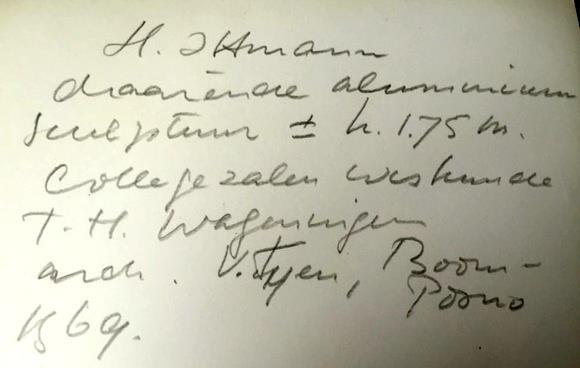 H. Ittmann
draaiende aluminium
sculptuur ± h. 1.75 m.
Collegezalen wiskunde
T.H. Wageningen
arch. V. Tyen, Boom-
Posno
1969.